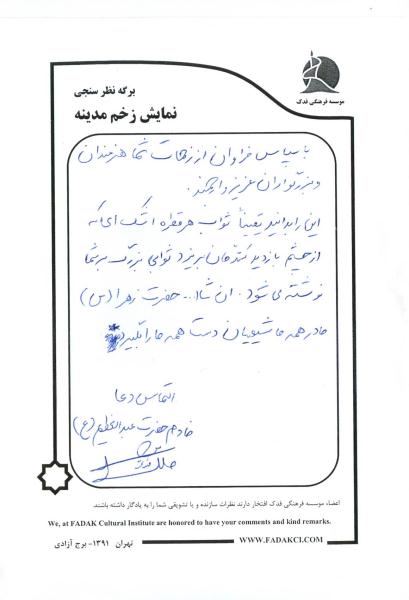 موسسه فرهنگی فدک
برگه نظر سنجی
نمایش زخم مدینه
با سپاس فراوان از زحمات شما هنرمندان
و بزرگواران عزیز و ارجمند.
این را بدانید یقیناً ثواب هر قطره اشک ای که
از چشم بازدید کنندگان بریزد ثوابی بزرگ بر شما
نوشته می شود. ان شاا... حضرت زهرا (س)
مادر همه ما شیعیان دست همه ما را بگیرد
التماس دعا
خادم حضرت عبدالعظیم (ع)
اعضاء موسسه فرهنگی فدک افتخار دارند نظرات سازنده و یا تشویقی شما را به یادگار داشته باشند.
We, at FADAK Cultural Institute are honored to have your comments and kind remarks.
تهران ۱۳۹۱- برج آزادی
WWW.FADAKCI.COM